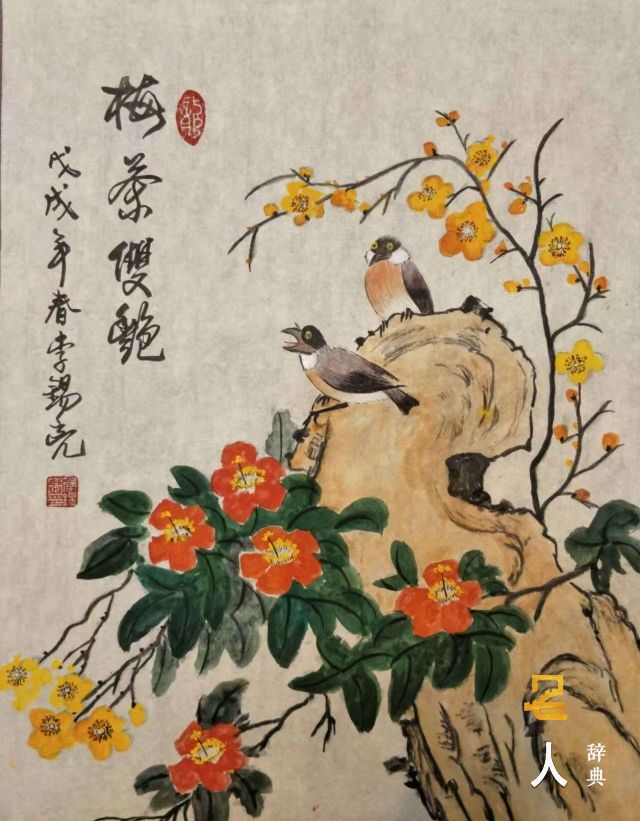 梅茶雙艷
戊戌年春李錫亮
名
人
辞典